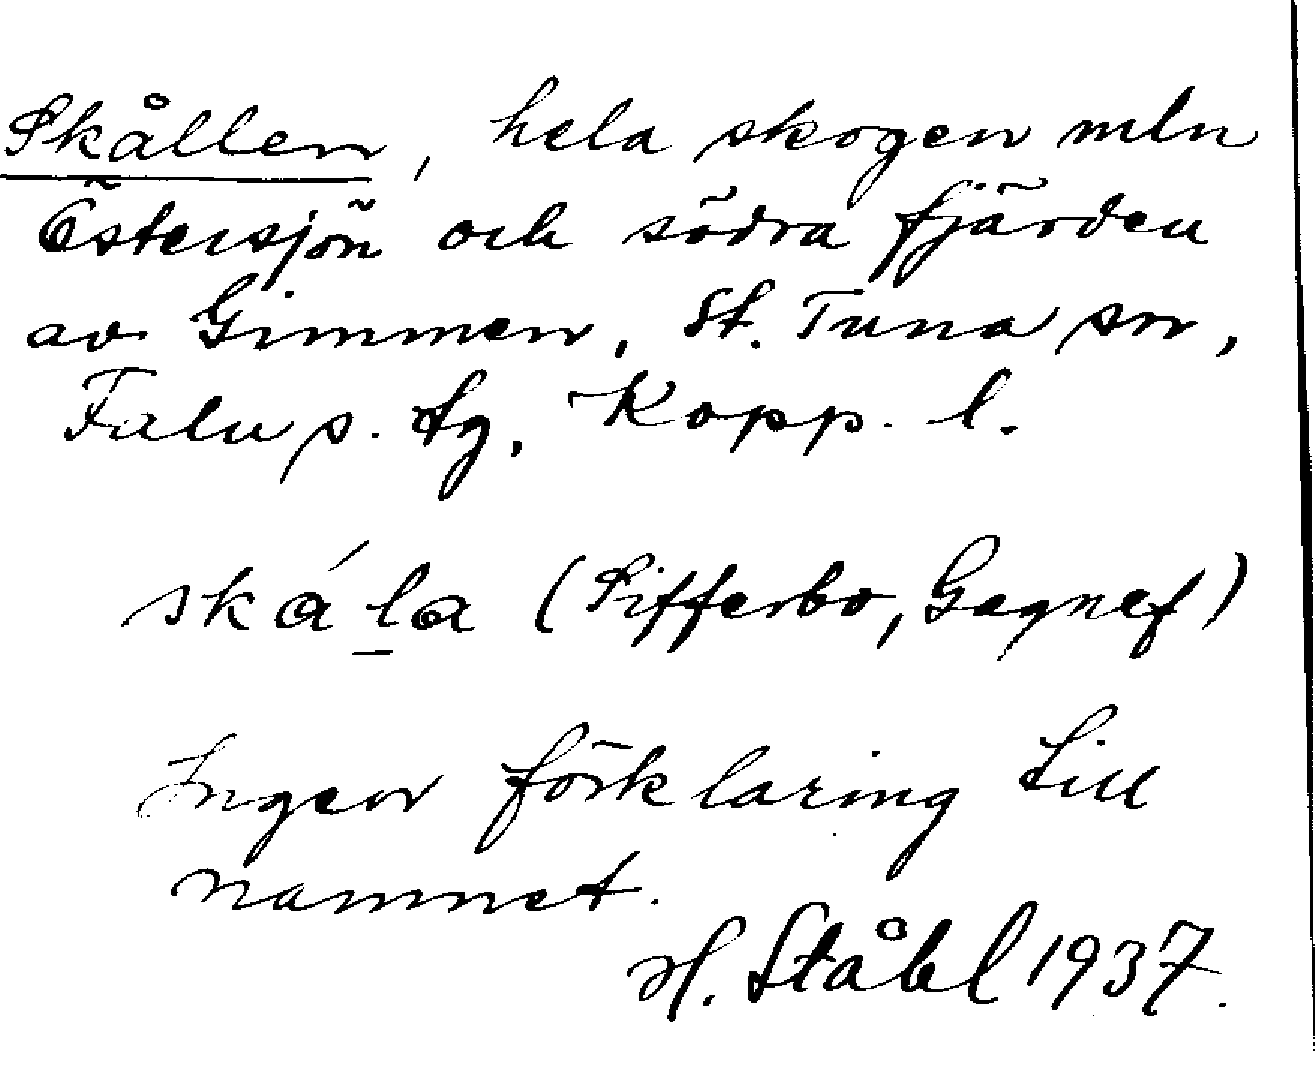 Skållen, hela skogen mln
Östersjön och södra fjärden
av Gimmen, St. Tuna sn,
Falu s. tg, Kopp. l.
ská la (Sifferbo, Gagnef)
Ingen förklaring till
namnet.
H. Ståhl 1937.